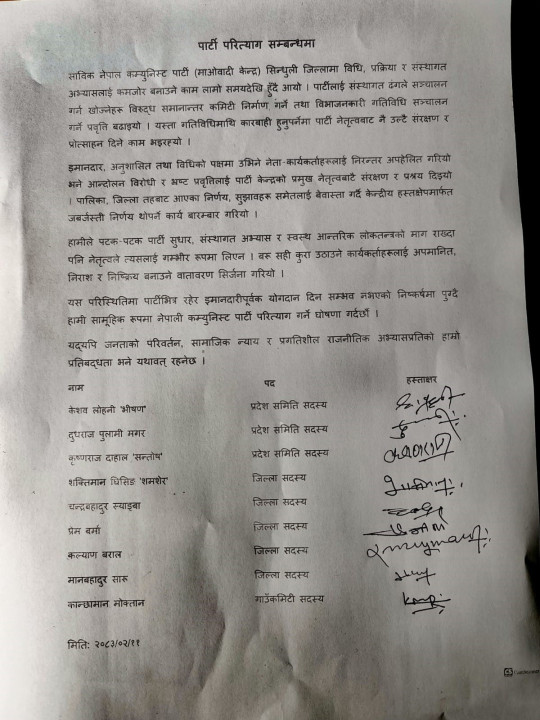 पार्टी परित्याग सम्बन्धमा
साविक नेपाल कम्युनिस्ट पार्टी (माओवादी केन्द्र) सिन्धुली जिल्लामा विधि, प्रक्रिया र संस्थागत
अभ्यासलाई कमजोर बनाउने काम लामो समयदेखि हुँदै आयो । पार्टीलाई संस्थागत ढंगले सञ्चालन
गर्न खोज्नेहरू विरुद्ध समानान्तर कमिटी निर्माण गर्ने तथा विभाजनकारी गतिविधि सञ्चालन
गर्ने प्रवृत्ति बढाइयो । यस्ता गतिविधिमाथि कारबाही हुनुपर्नेमा पार्टी नेतृत्वबाट नै उल्टै संरक्षण र
प्रोत्साहन दिने काम भइरह्यो ।
इमानदार, अनुशासित तथा विधिको पक्षमा उभिने नेता-कार्यकर्ताहरूलाई निरन्तर अपहेलित गरियो
भने आन्दोलन विरोधी र भ्रष्ट प्रवृत्तिलाई पार्टी केन्द्रको प्रमुख नेतृत्वबाट संरक्षण र प्रश्रय दिइयो
। पालिका, जिल्ला तहबाट आएका निर्णय, सुझावहरू समेतलाई बेवास्ता गर्दै केन्द्रीय हस्तक्षेपमार्फत
जबर्जस्ती निर्णय थोपर्ने कार्य बारम्बार गरियो ।
हामीले पटक-पटक पार्टी सुधार, संस्थागत अभ्यास र स्वस्थ आन्तरिक लोकतन्त्रको माग राख्दा
पनि नेतृत्वले त्यसलाई गम्भीर रूपमा लिएन । बरू सही कुरा उठाउने कार्यकर्ताहरूलाई अपमानित,
निराश र निष्क्रिय बनाउने वातावरण सिर्जना गरियो ।
यस परिस्थितिमा पार्टीभित्र रहेर इमानदारीपूर्वक योगदान दिन सम्भव नभएको निष्कर्षमा पुग्दै
हामी सामूहिक रूपमा नेपाली कम्युनिस्ट पार्टी परित्याग गर्ने घोषणा गर्दछौं ।
यद्यपि जनताको परिवर्तन, सामाजिक न्याय र प्रगतिशील राजनीतिक अभ्यासप्रतिको हाम्रो
प्रतिबद्धता भने यथावत् रहनेछ ।
नाम पद हस्ताक्षर
केशव लोहनी 'भीषण' प्रदेश समिति सदस्य
दुधराज पुलामी मगर प्रदेश समिति सदस्य
कृष्णराज दाहाल 'सन्तोष' प्रदेश समिति सदस्य
शक्तिमान घिसिङ 'शमशेर' जिल्ला सदस्य
चन्द्रबहादुर स्याङ्बा जिल्ला सदस्य
प्रेम बर्मा जिल्ला सदस्य
कल्याण बराल जिल्ला सदस्य
मानबहादुर सारू जिल्ला सदस्य
कान्छामान मोक्तान गाउँकमिटी सदस्य
मिति: २०८३/०२/११